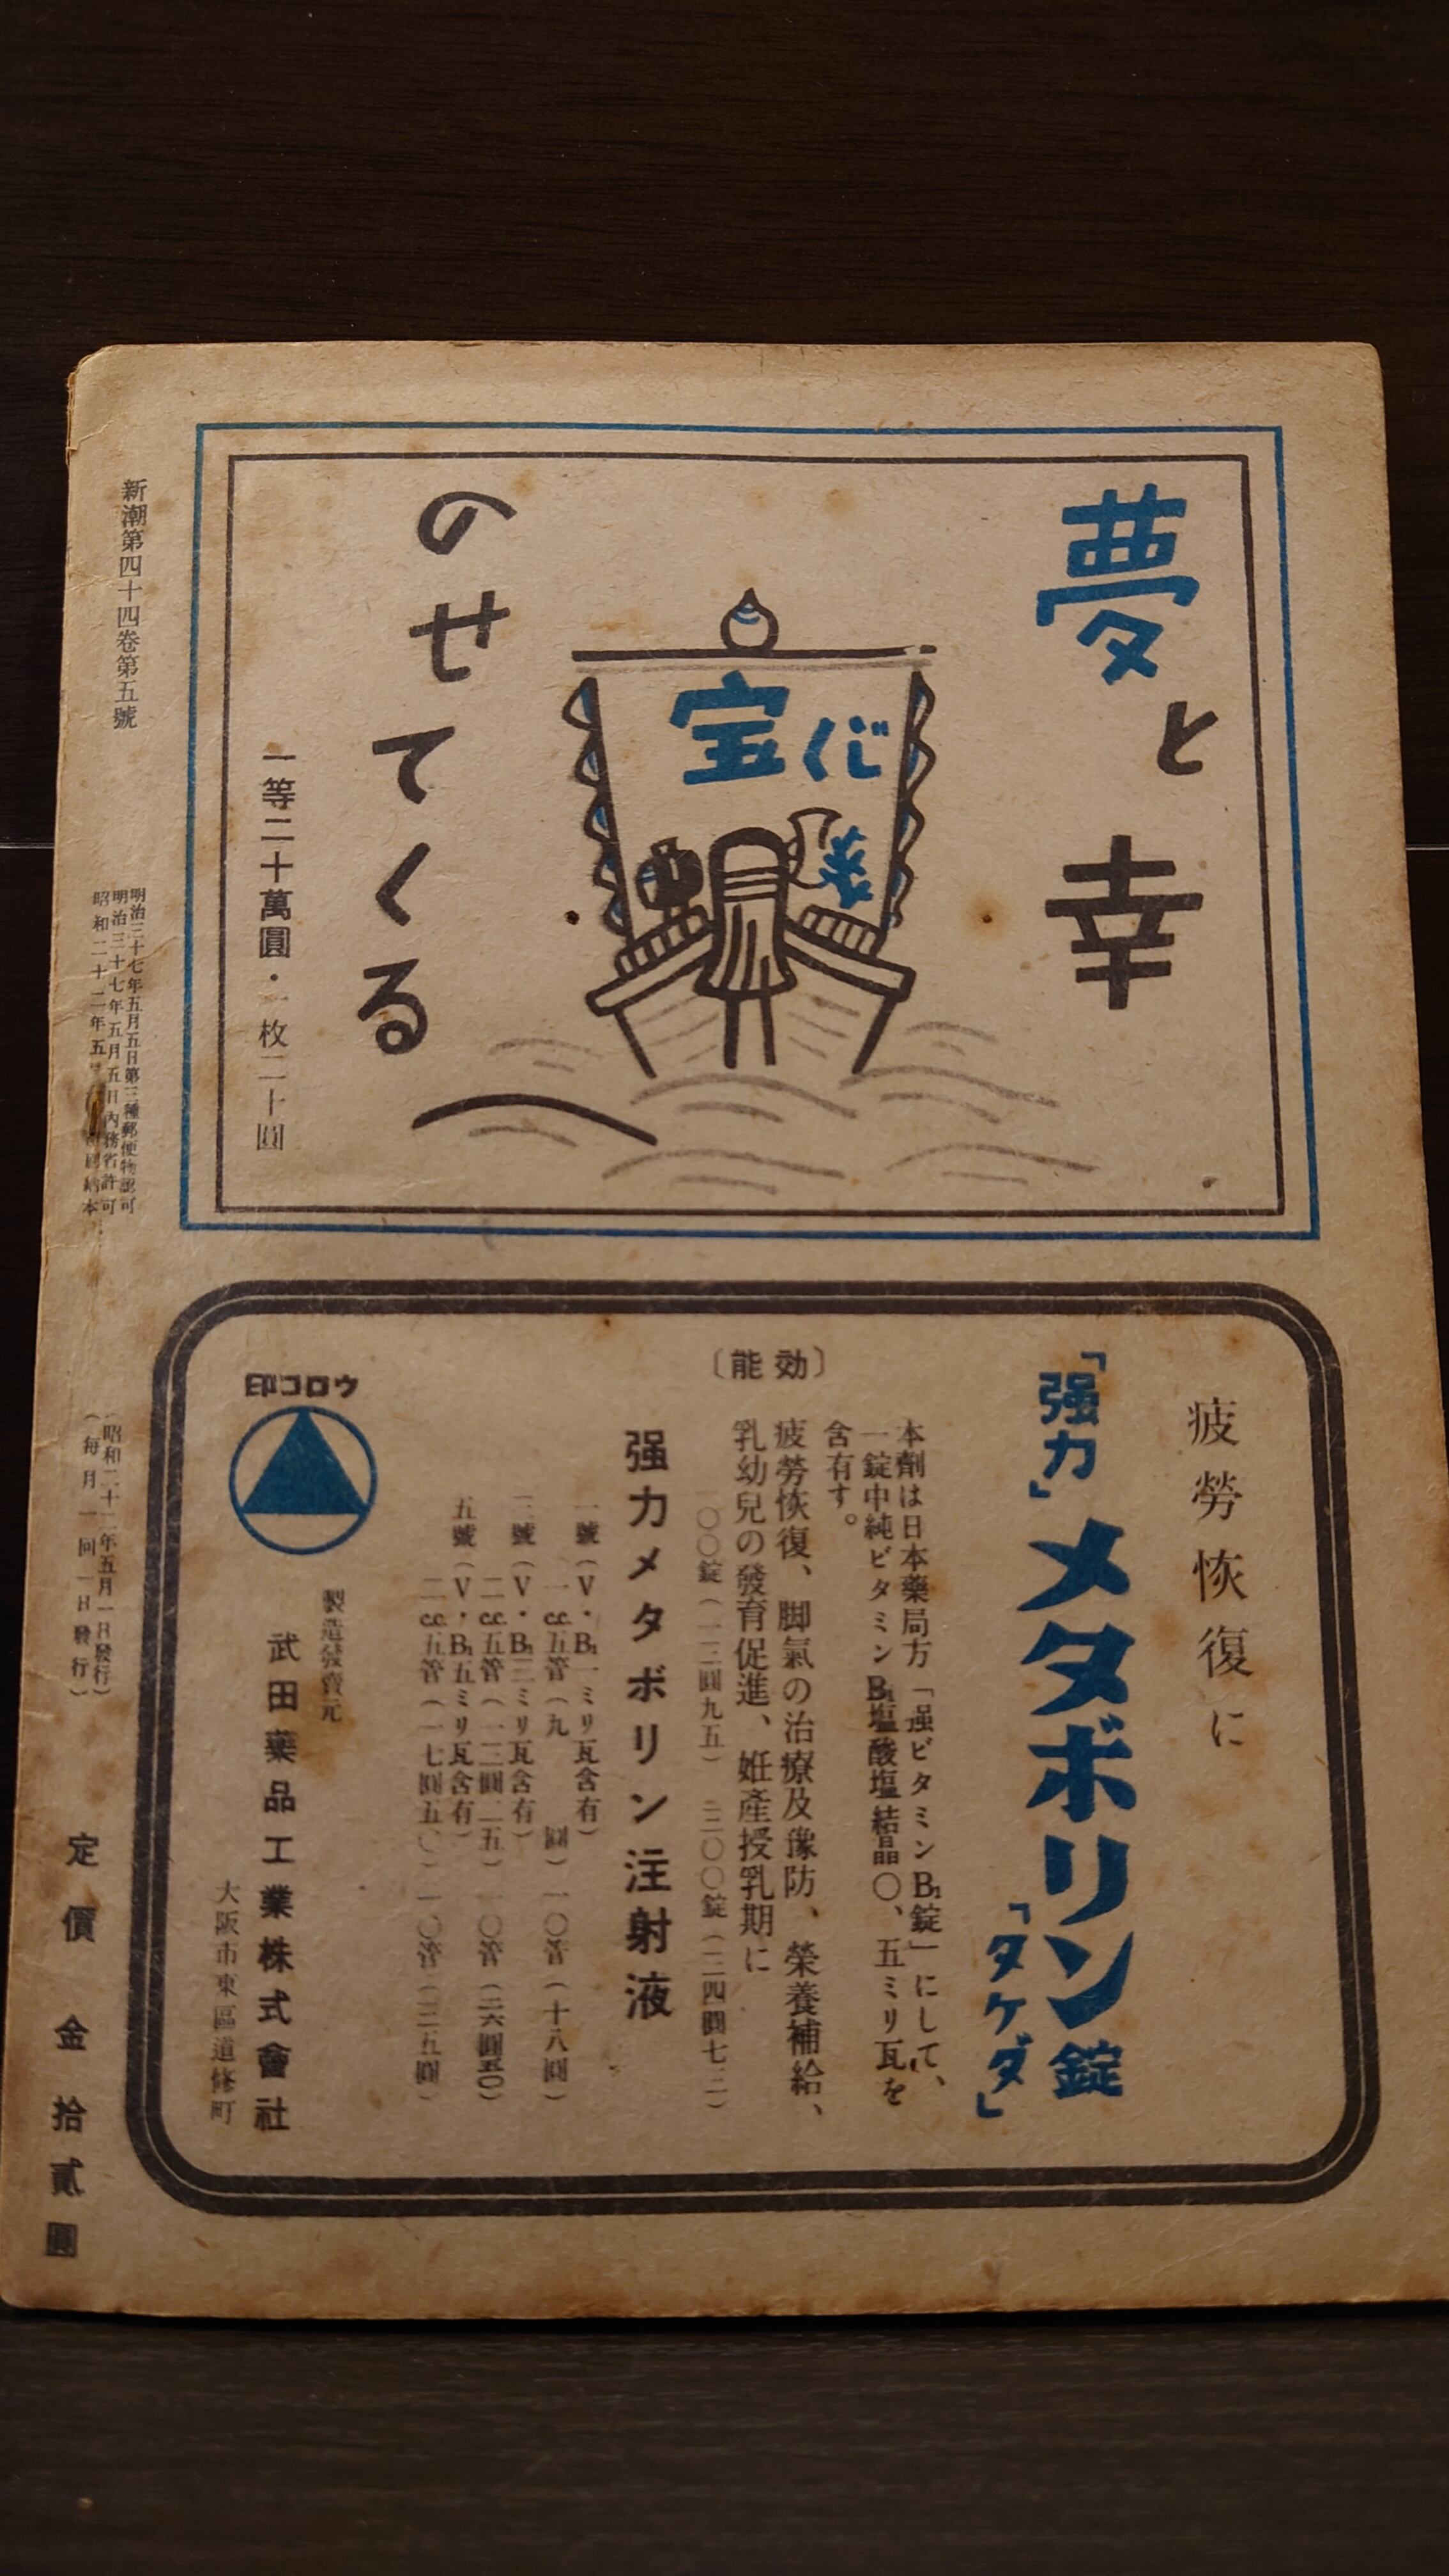 夢と幸
のせてくる
宝くじ
一等二十萬圓・一枚二十圓
疲勞恢復に
「强力」メタボリン錠
「タケダ」
本劑は日本藥局方「强ビタミンB₁錠」にして、
一錠中純ビタミンB₁塩酸塩結晶〇、五ミリ瓦を
含有す。
〔能効〕
疲勞恢復、脚氣の治療及豫防、榮養補給、
乳幼兒の發育促進、姙產授乳期に
一〇〇錠（一三圓九五）
强力メタボリン注射液
一號（V・B₁一ミリ瓦含有）
一cc五管（九圓）一〇管（十八圓）
二號（V・B₁二ミリ瓦含有）
五號（V・B₁五ミリ瓦含有）
二cc五管（一七圓五〇）一〇管（三五圓）
印コロウ
製造發賣元
武田藥品工業株式會社
大阪市東區道修町
新潮第四十四卷第五號
明治三十七年五月五日第三種郵便物認可
明治三十七年五月五日內務省許可
昭和二十二年五
（昭和二十二年五月一日發行）
（每月一回一日發行）
定價金拾貳圓